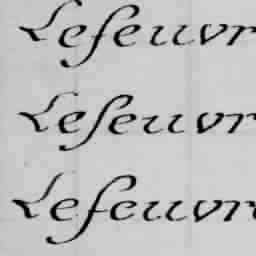 Lefeuvr
Lefeuvr
Lefeuvre